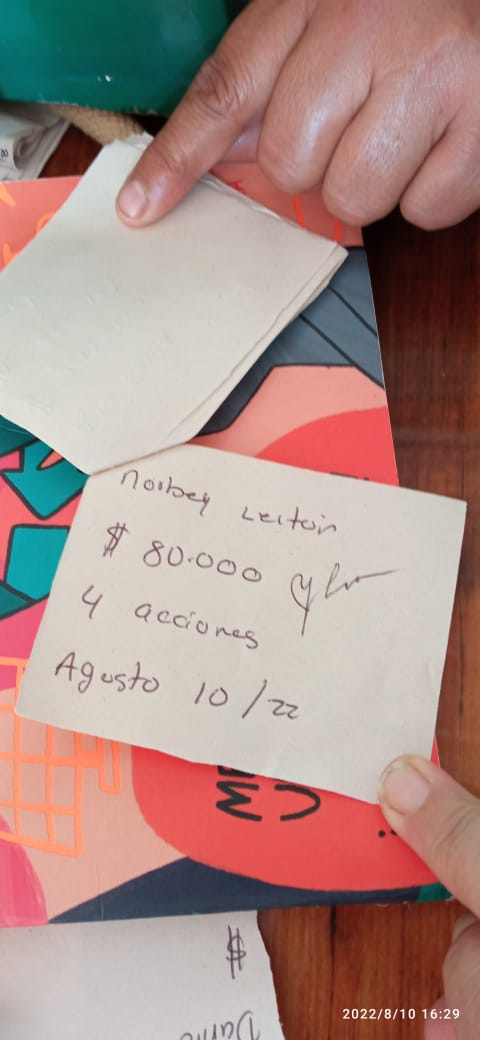 Norbey Leiton
$ 80.000
4 acciones
Agosto 10/22
$
2022/8/10 16:29